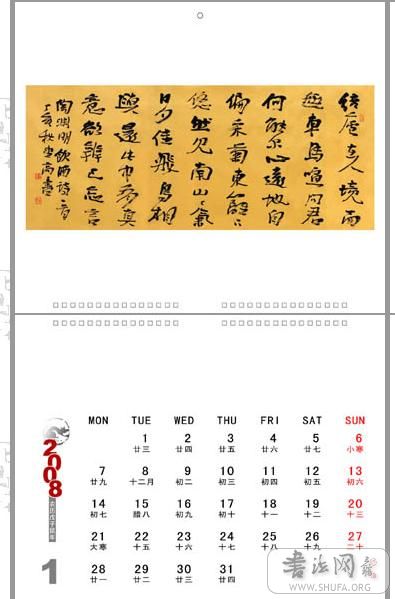 結廬在人境而
無車馬喧問君
何能爾心遠地自
偏采菊東籬下
悠然見南山〻氣
日夕佳飛鳥相
與還此中有真
意欲辨已忘言
陶淵明飲酒詩一首
丁亥秋書
2008
农历戊子鼠年
1
MON TUE WED THU FRI SAT SUN
1 2 3 4 5 6
廿三 廿四 廿五 廿六 廿七 小寒
7 8 9 10 11 12 13
廿九 十二月 初二 初三 初四 初五 初六
14 15 16 17 18 19 20
初七 腊八 初九 初十 十一 十二 十三
21 22 23 24 25 26 27
大寒 十五 十六 十七 十八 十九 二十
28 29 30 31
廿一 廿二 廿三 廿四
书法网
WWW.SHUFA.ORG